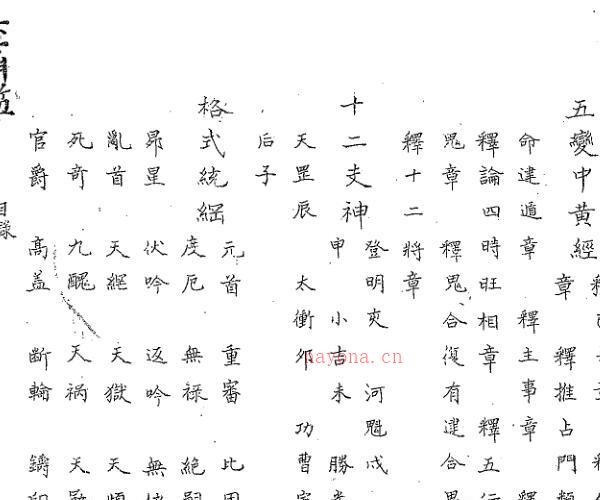 五變中黃經
章 釋推占門
命建遁章 釋主事章 釋
釋論四時旺相章 釋五行
鬼章 釋鬼合復有建合鬼
釋十二將章
十二支神
登明亥 河魁戌
申 小吉未 勝
天罡辰 太衝卯 功曹
后子
格式統綱
元首 重審 比
度厄 無祿 絕
昴星 伏吟 返吟 無
亂首 天網 天獄 天
死奇 九醜 天禍 天
官爵 高蓋 斷輪 鑄
目錄
nayona.cn